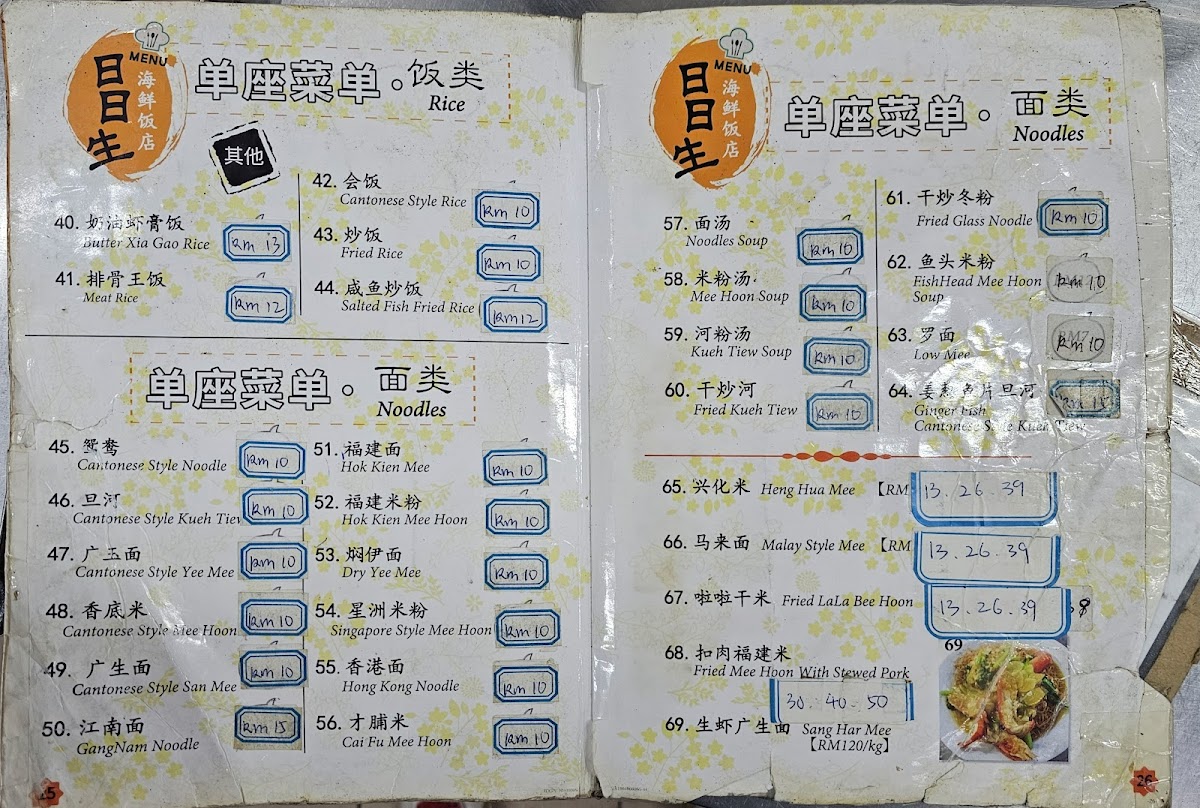 MENU
日日生
海鲜饭店
单座菜单·饭类
Rice
其他
40. 奶油虾膏饭
Butter Xia Gao Rice
Rm 13
41. 排骨王饭
Meat Rice
Rm 12
42. 会饭
Cantonese Style Rice
Rm 10
43. 炒饭
Fried Rice
Rm 10
44. 咸鱼炒饭
Salted Fish Fried Rice
Rm 12
单座菜单·面类
Noodles
45. 鸳鸯
Cantonese Style Noodle
Rm 10
46. 旦河
Cantonese Style Kueh Tiew
Rm 10
47. 广玉面
Cantonese Style Yee Mee
Rm 10
48. 香底米
Cantonese Style Mee Hoon
Rm 10
49. 广生面
Cantonese Style San Mee
Rm 10
50. 江南面
GangNam Noodle
Rm 15
51. 福建面
Hok Kien Mee
Rm 10
52. 福建米粉
Hok Kien Mee Hoon
Rm 10
53. 焖伊面
Dry Yee Mee
Rm 10
54. 星洲米粉
Singapore Style Mee Hoon
Rm 10
55. 香港面
Hong Kong Noodle
Rm 10
56. 才脯米
Cai Fu Mee Hoon
Rm 10
25
MENU
日日生
海鲜饭店
单座菜单·面类
Noodles
57. 面汤
Noodles Soup
Rm 10
58. 米粉汤
Mee Hoon Soup
Rm 10
59. 河粉汤
Kueh Tiew Soup
Rm 10
60. 干炒河
Fried Kueh Tiew
Rm 10
61. 干炒冬粉
Fried Glass Noodle
Rm 10
62. 鱼头米粉
FishHead Mee Hoon
Soup
Rm 10
63. 罗面
Low Mee
Rm 10
64. 姜葱鱼片旦河
Ginger Fish
Cantonese Style Kueh Tiew
Rm 15
65. 兴化米 Heng Hua Mee 【RM 13.26.39
66. 马来面 Malay Style Mee 【RM 13.26.39
67. 啦啦干米 Fried LaLa Bee Hoon 13.26.39
68. 扣肉福建米
Fried Mee Hoon With Stewed Pork
30.40.50
69. 生虾广生面 Sang Har Mee
【RM120/kg】
69
26